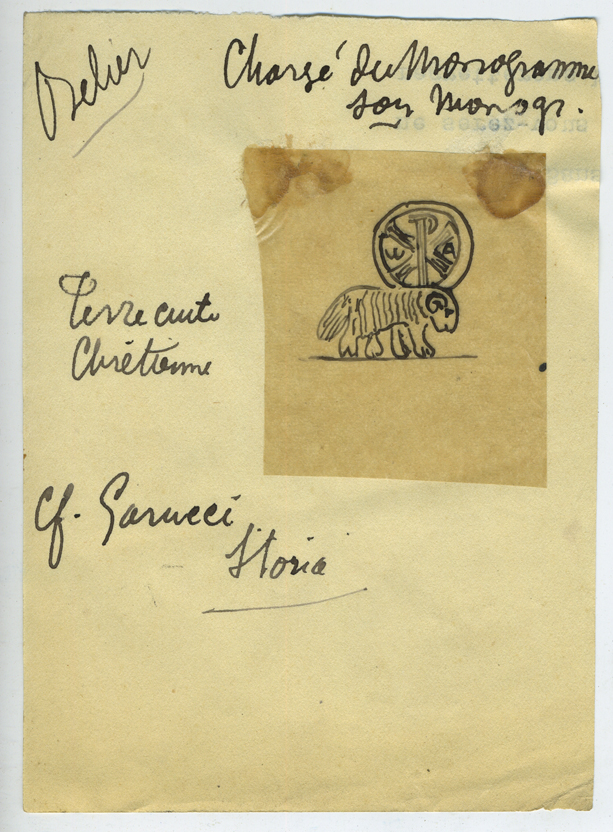 Belier
Chargé du Monogramme
son Monogr.
ω A
Terre cuite
Chrétienne
Cf. Garucci
Storia